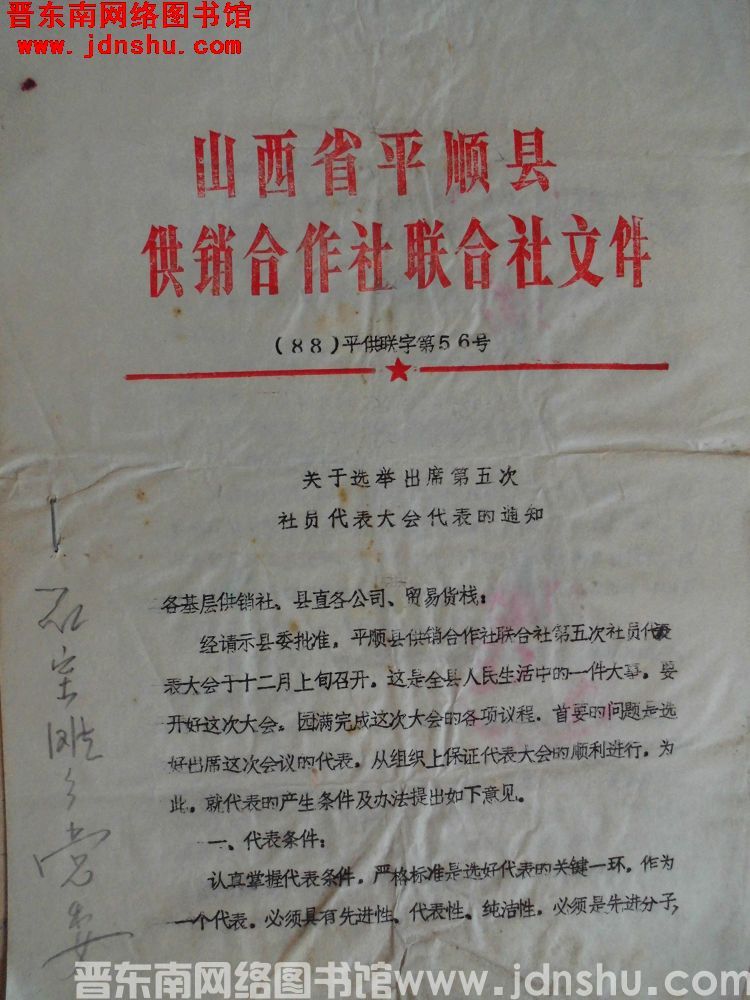 晋东南网络图书馆
www.jdnshu.com
山西省平顺县
供销合作社联合社文件
(88)平供联字第56号
关于选举出席第五次
社员代表大会代表的通知
各基层供销社、县直各公司、贸易货栈:
经请示县委批准,平顺县供销合作社联合社第五次社员代
表大会于十二月上旬召开。这是全县人民生活中的一件大事。要
开好这次大会。园满完成这次大会的各项议程,首要的问题是选
好出席这次会议的代表。从组织上保证代表大会的顺利进行,为
此。就代表的产生条件及办法提出如下意见。
一、代表条件:
认真掌握代表条件,严格标准是选好代表的关键一环。作为
一个代表。必须具有先进性、代表性、纯洁性,必须是先进分子,
乡党委
晋东南网络图书馆www.jdnshu.com